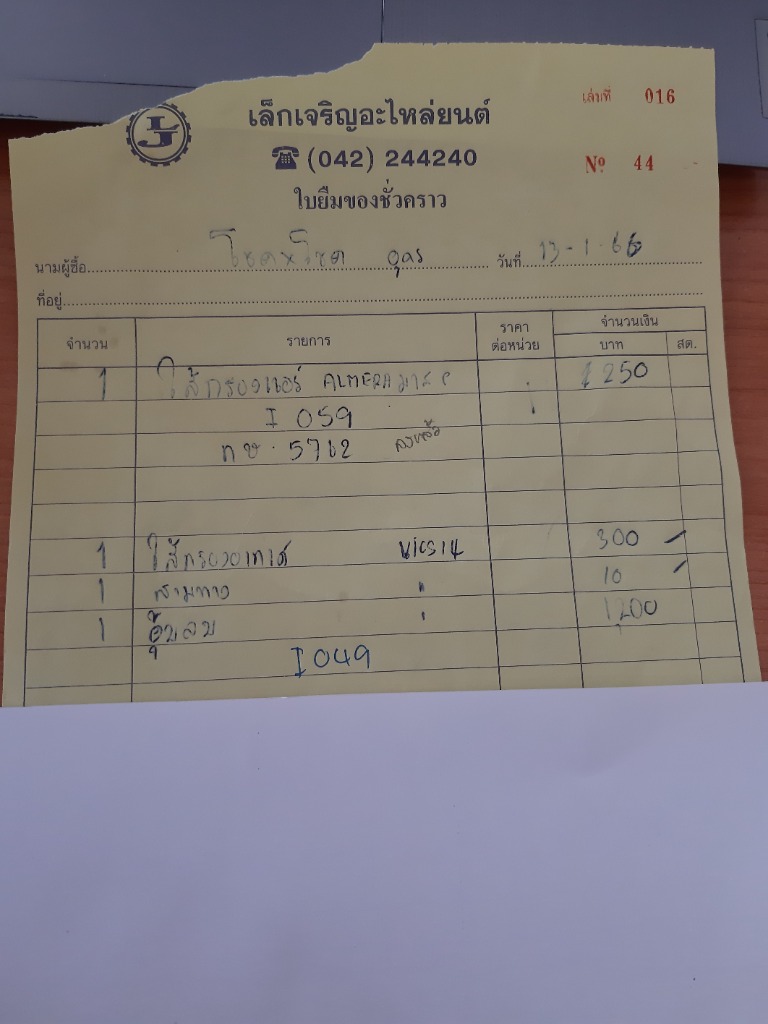 เล็กเจริญอะไหล่ยนต์
เล่มที่ 016
(042) 244240
Nº 44
ใบยืมของชั่วคราว
นามผู้ซื้อ โชค×โชค วันที่ 13-1-66
ที่อยู่
จำนวน รายการ ราคาต่อหน่วย จำนวนเงิน
บาท สต.
1 ไส้กรองแอร์ ALMERA 250
I 059
ทษ. 5762
1 ไส้กรองอากาศ 300
1 10
1 1,200
I 049